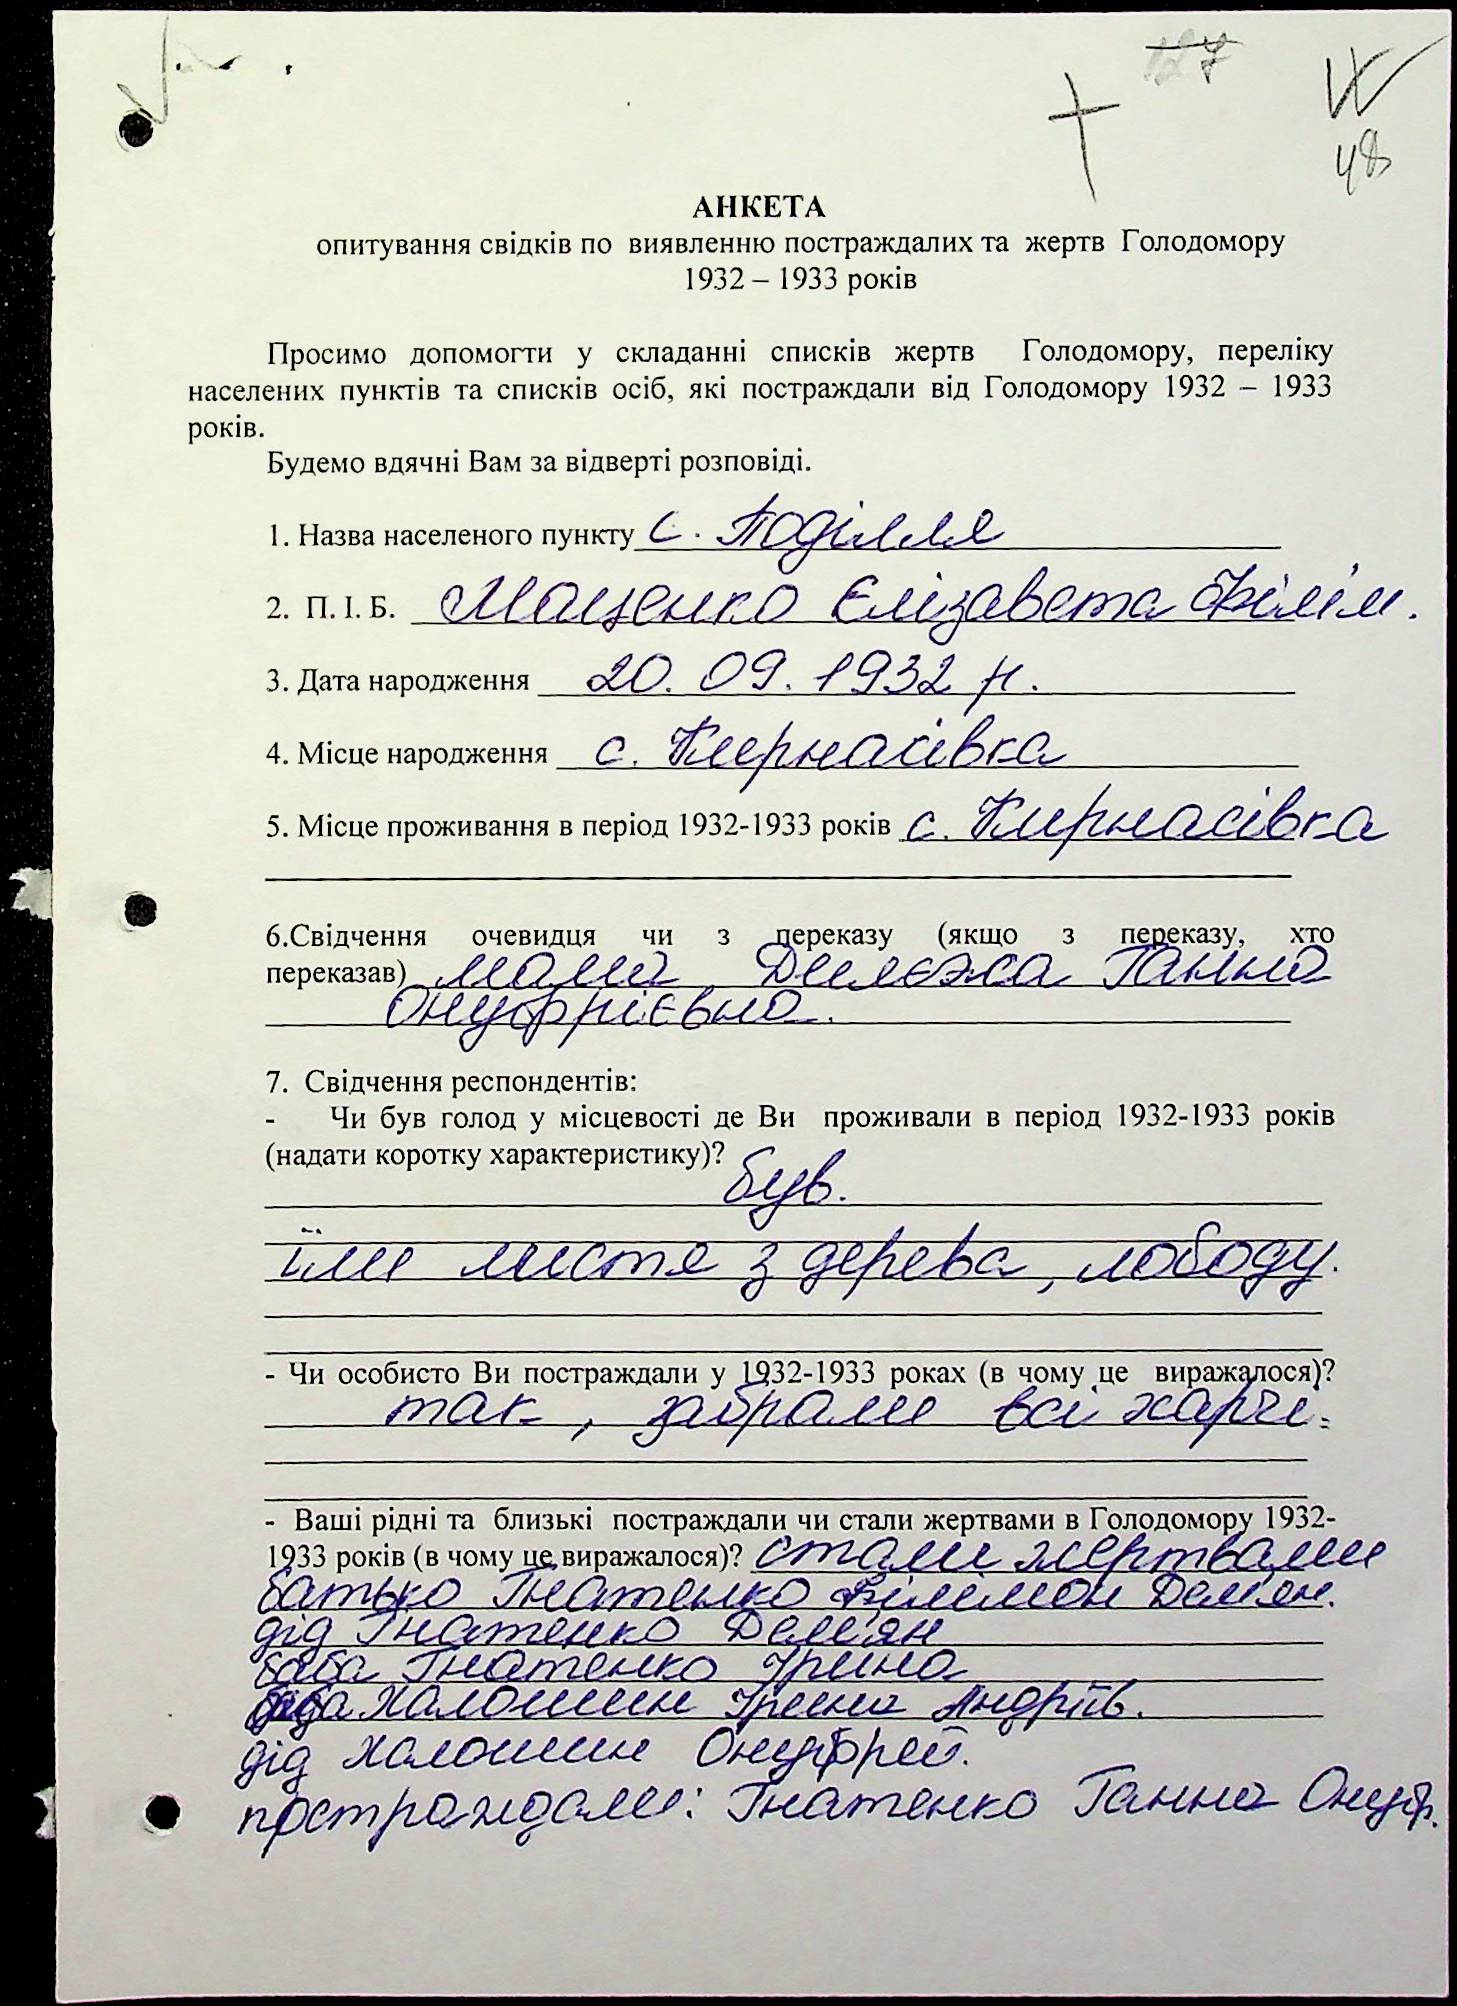 127
48
АНКЕТА
опитування свідків по виявленню постраждалих та жертв Голодомору
1932 – 1933 років
Просимо допомогти у складанні списків жертв Голодомору, переліку
населених пунктів та списків осіб, які постраждали від Голодомору 1932 – 1933
років.
Будемо вдячні Вам за відверті розповіді.
1. Назва населеного пункту с. Поділля
2. П. І. Б. Маценко Єлізавета Філім.
3. Дата народження 20.09.1932 р.
4. Місце народження с. Кирнасівка
5. Місце проживання в період 1932-1933 років с. Кирнасівка
6.Свідчення очевидця чи з переказу (якщо з переказу, хто
переказав) мама Дилєжа Ганна
Онуфрієвна.
7. Свідчення респондентів:
- Чи був голод у місцевості де Ви проживали в період 1932-1933 років
(надати коротку характеристику)?
був.
їли листя з дерева, лободу.
- Чи особисто Ви постраждали у 1932-1933 роках (в чому це виражалося)?
так, забрали всі харчі.
- Ваші рідні та близькі постраждали чи стали жертвами в Голодомору 1932-
1933 років (в чому це виражалося)? стали жертвами
батько Гнатенко Філімон Дем'ян.
дід Гнатенко Дем'ян
баба Гнатенко Ірина
баба Халошин Ірина Андріїв.
дід Халошин Онуфрей.
постраждали: Гнатенко Ганна Онуф.